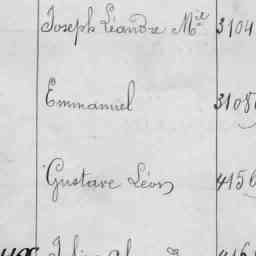 Joseph Léandre Mel 3104
Emmanuel 3108
Gustave Léon 4156